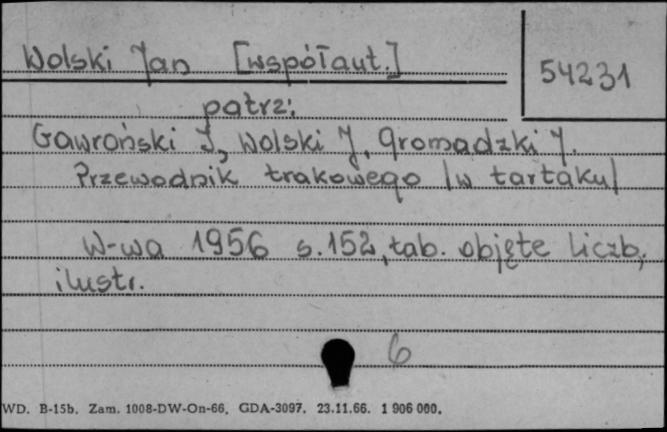 Wolski Jan [współaut.]
54231
patrz:
Gawroński J., Wolski J., Gromadzki J.
Przewodnik trakowego /w tartaku/
W-wa 1956 s. 152, tab. objęte liczb,
ilustr.
6
WD. B-15b. Zam. 1008-DW-On-66. GDA-3097. 23.11.66. 1 906 000.